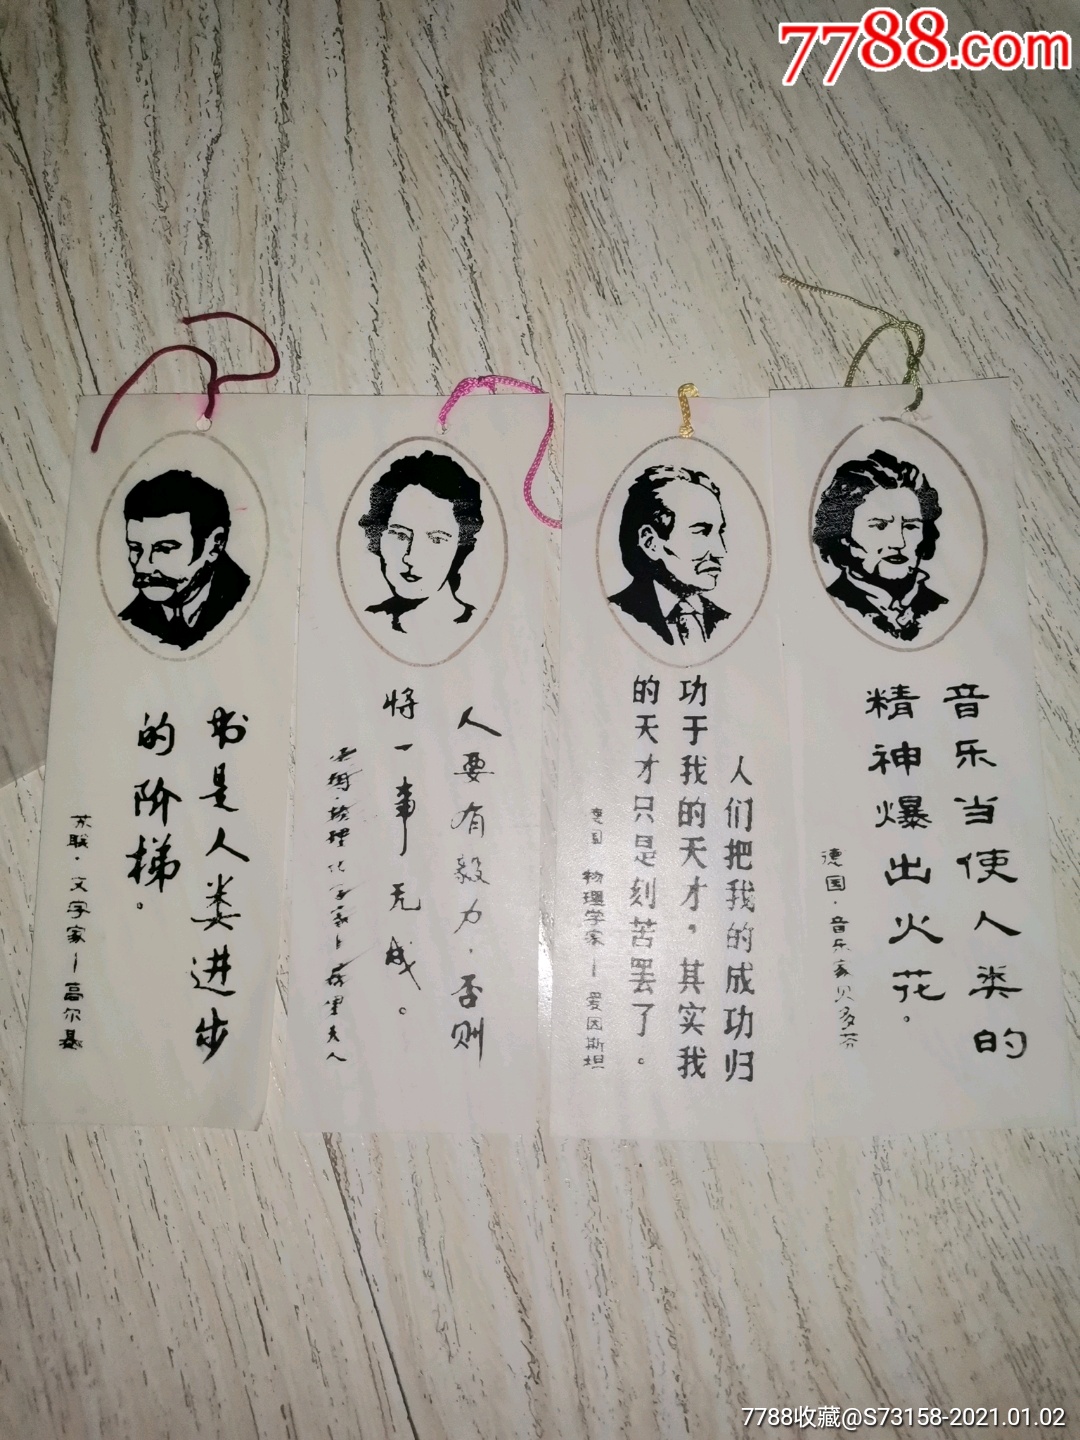 7788.com
书是人类进步
的阶梯。
苏联·文学家—高尔基
人要有毅力,否则
将一事无成。
人们把我的成功归
功于我的天才,其实我
的天才只是刻苦罢了。
德国 物理学家—爱因斯坦
音乐当使人类的
精神爆出火花。
德国·音乐家贝多芬
7788收藏@S73158-2021.01.02